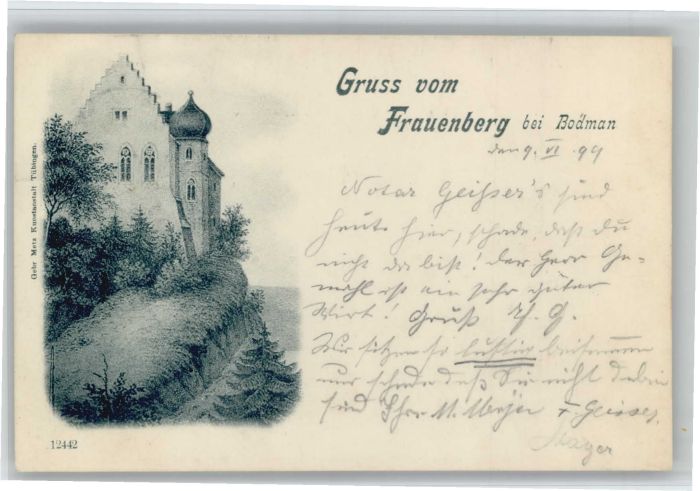 Gruss vom
Frauenberg bei Bodman
den 9. VI. 99
Notar Geißer's sind
heute hier, schade, daß du
nicht da bist! Der Herr Ge-
mahl ist ein sehr guter
Wirt! Gruß
Wir sitzen so lustig beisammen
nur schade daß Sie nicht dabei
sind Ihre M. Meyer F. Geisser,
Mayer
Gebr Metz Kunstanstalt Tübingen.
12442